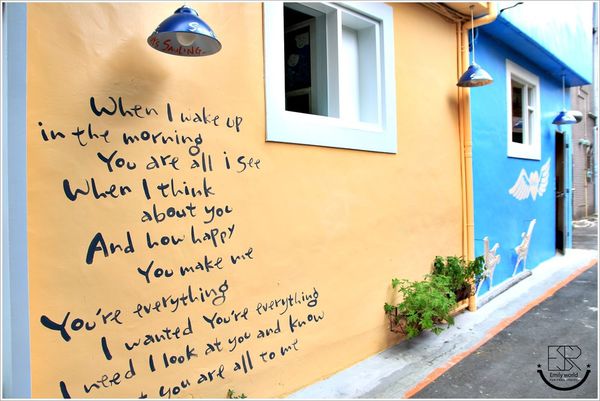 When I wake up
in the morning
You are all i see
When I think
about you
And how happy
You make me
You're everything
I wanted You're everything
I need I look at you and know
you are all to me
ESR
Emily world